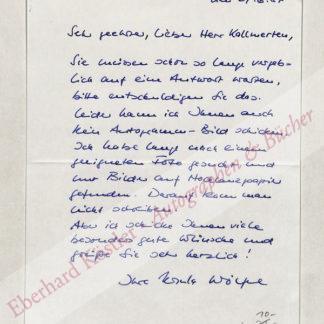 Sehr geehrter, lieber Herr Kollwerten,
Sie müssen schon so lange vergeb-
lich auf eine Antwort warten,
bitte entschuldigen Sie das.
Leider kann ich Ihnen auch
kein Autogramm-Bild schicken.
Ich habe lange nach einem
geeigneten Foto gesucht und
nur Bilder auf Hochglanzpapier
gefunden. Darauf kann man
nicht schreiben.
Aber ich schicke Ihnen viele
besonders gute Wünsche und
grüße Sie sehr herzlich!
Ihre Ursula Wölfel
10-
Eberhard Köstler - Autographen & Bücher